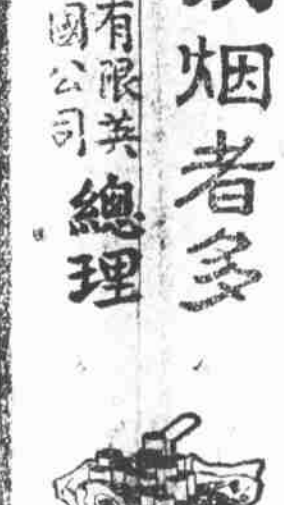 烟者多
有限英
國公司
總理